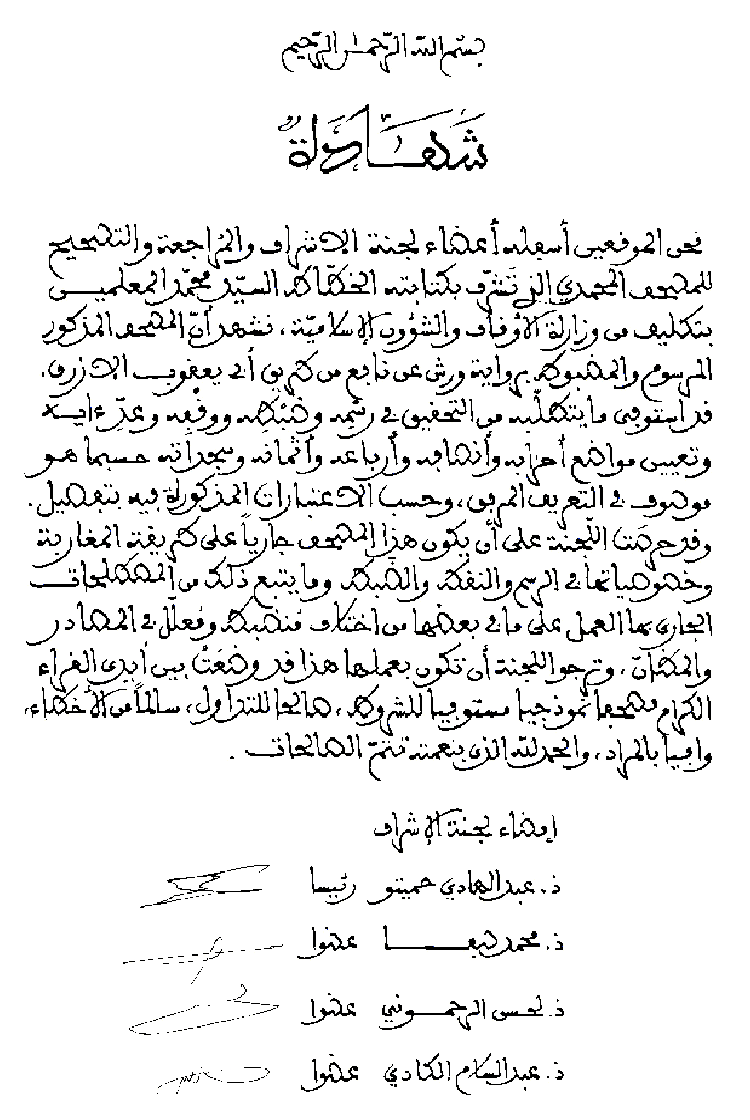 بسم الله الرحمن الرحيم
شهادة
نحن الموقعين أسفله أعضاء لجنة الإشراف والمراجعة والتصحيح
للمصحف المحمدي الذي تشرف بكتابته الخطاط السيد محمد المعلمين
بتكليف من وزارة الأوقاف والشؤون الإسلامية، نشهد أن المصحف المذكور
المرسوم والمضبوط برواية ورش عن نافع من طريق أبي يعقوب الأزرق،
قد استوفى ما يتطلبه من التحقيق في رسمه وضبطه ووقفه وعد آيه
وتعيين مواضع أحزابه وأنصافه وأرباعه وأثمانه وسجداته حسبما هو
موصوف في التعريف المرفق، وحسب الاعتبارات المذكورة فيه بتفصيل.
وقد حرصت اللجنة على أن يكون هذا المصحف جاريا على طريقة المغاربة
وخصوصياتها في الرسم والنقط والضبط وما يتبع ذلك من المصطلحات
الجاري بها العمل على ما في بعضها من اختلاف منضبط ومعلل في المصادر
والمظان، وترجو اللجنة أن تكون بعملها هذا قد وضعت بين أيدي القراء
الكرام مصحفا نموذجيا مستوفيا للشروط، صالحا للتداول، سالما من الأخطاء،
وافيا بالمراد، والحمد لله الذي بنعمته تتم الصالحات.
إمضاء لجنة الإشراف
ذ. عبد الهادي حميتو رئيسا
ذ. محمد عضوا
ذ. لحسن الرحموني عضوا
ذ. عبد السلام عضوا